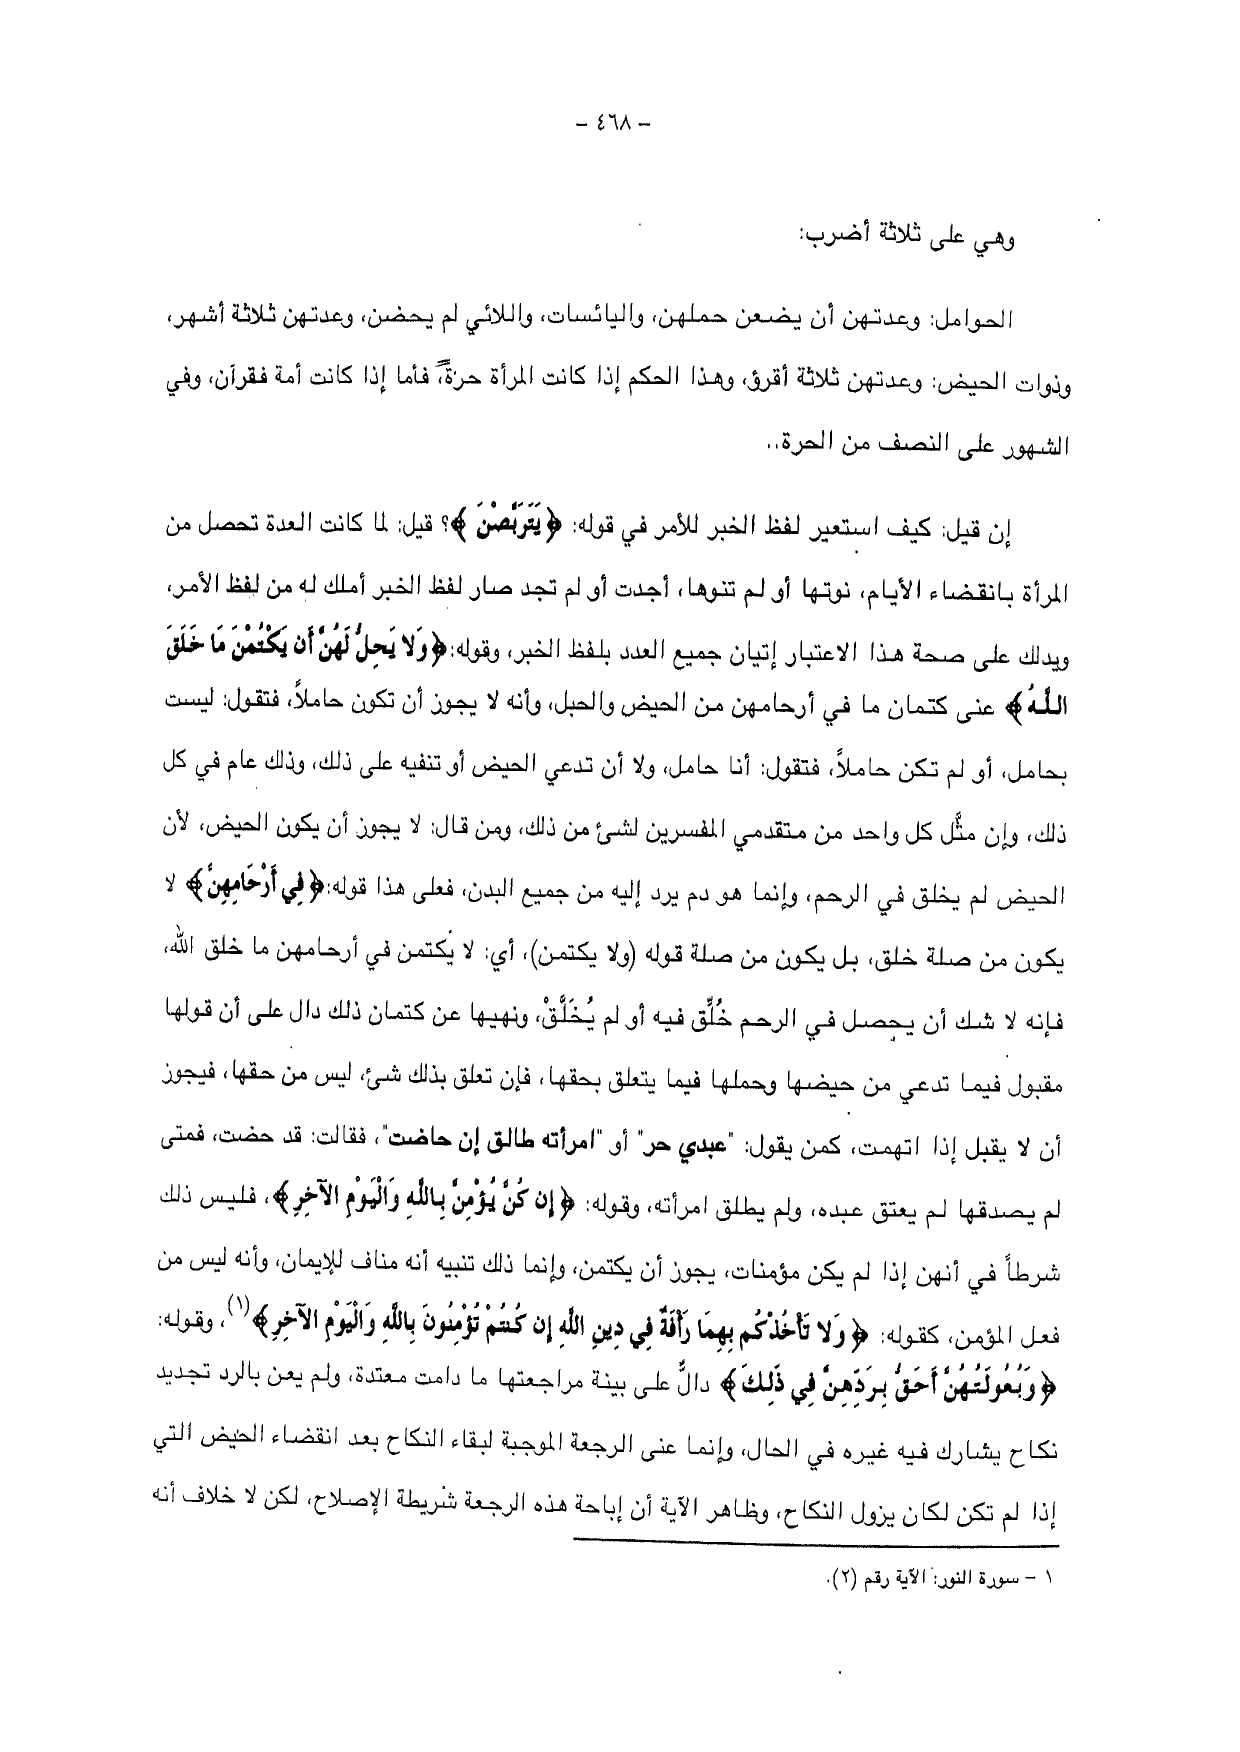 - ٤٦٨ -
وهي على ثلاثة أضرب:
الحوامل: وعدتهن أن يضعن حملهن، واليائسات، واللائي لم يحضن، وعدتهن ثلاثة أشهر،
وذوات الحيض: وعدتهن ثلاثة أقرؤ، وهذا الحكم إذا كانت المرأة حرّةً، فأما إذا كانت أمة فقرآن، وفي
الشهور على النصف من الحرة..
إن قيل: كيف استعير لفظ الخبر للأمر في قوله: ﴿يَتَرَبَّصْنَ﴾؟ قيل: لما كانت العدة تحصل من
المرأة بانقضاء الأيام، نوتها أو لم تنوها، أجدت أو لم تجد صار لفظ الخبر أملك له من لفظ الأمر،
ويدلك على صحة هذا الاعتبار إتيان جميع العدد بلفظ الخبر، وقوله: ﴿وَلَا يَحِلُّ لَهُنَّ أَن يَكْتُمْنَ مَا خَلَقَ
اللهُ﴾ عنى كتمان ما في أرحامهن من الحيض والحبل، وأنه لا يجوز أن تكون حاملاً، فتقول: ليست
بحامل، أو لم تكن حاملاً، فتقول: أنا حامل، ولا أن تدعي الحيض أو تنفيه على ذلك، وذلك عام في كل
ذلك، وإن مثَّل كل واحد من متقدمي المفسرين لشئ من ذلك، ومن قال: لا يجوز أن يكون الحيض، لأن
الحيض لم يخلق في الرحم، وإنما هو دم يرد إليه من جميع البدن، فعلى هذا قوله: ﴿فِي أَرْحَامِهِنَّ﴾ لا
يكون من صلة خلق، بل يكون من صلة قوله (ولا يكتمن)، أي: لا يكتمن في أرحامهن ما خلق الله،
فإنه لا شك أن يحصل في الرحم خُلِّق فيه أو لم يُخَلَّقْ، ونهيها عن كتمان ذلك دال على أن قولها
مقبول فيما تدعي من حيضها وحملها فيما يتعلق بحقها، فإن تعلق بذلك شئ، ليس من حقها، فيجوز
أن لا يقبل إذا اتهمت، كمن يقول: "عبدي حر" أو "امرأته طالق إن حاضت"، فقالت: قد حضت، فمتى
لم يصدقها لم يعتق عبده، ولم يطلق امرأته، وقوله: ﴿إِن كُنَّ يُؤْمِنَّ بِاللهِ وَالْيَوْمِ الآخِرِ﴾، فليس ذلك
شرطاً في أنهن إذا لم يكن مؤمنات، يجوز أن يكتمن، وإنما ذلك تنبيه أنه مناف للإيمان، وأنه ليس من
فعل المؤمن، كقوله: ﴿وَلَا تَأْخُذْكُم بِهِمَا رَأْفَةٌ فِي دِينِ اللهِ إِن كُنتُمْ تُؤْمِنُونَ بِاللهِ وَالْيَوْمِ الآخِرِ﴾(١)، وقوله:
﴿وَبُعُولَتُهُنَّ أَحَقُّ بِرَدِّهِنَّ فِي ذَلِكَ﴾ دالٌّ على بينة مراجعتها ما دامت معتدة، ولم يعن بالرد تجديد
نكاح يشارك فيه غيره في الحال، وإنما عنى الرجعة الموجبة لبقاء النكاح بعد انقضاء الحيض التي
إذا لم تكن لكان يزول النكاح، وظاهر الآية أن إباحة هذه الرجعة شريطة الإصلاح، لكن لا خلاف أنه
١ - سورة النور: الآية رقم (٢).